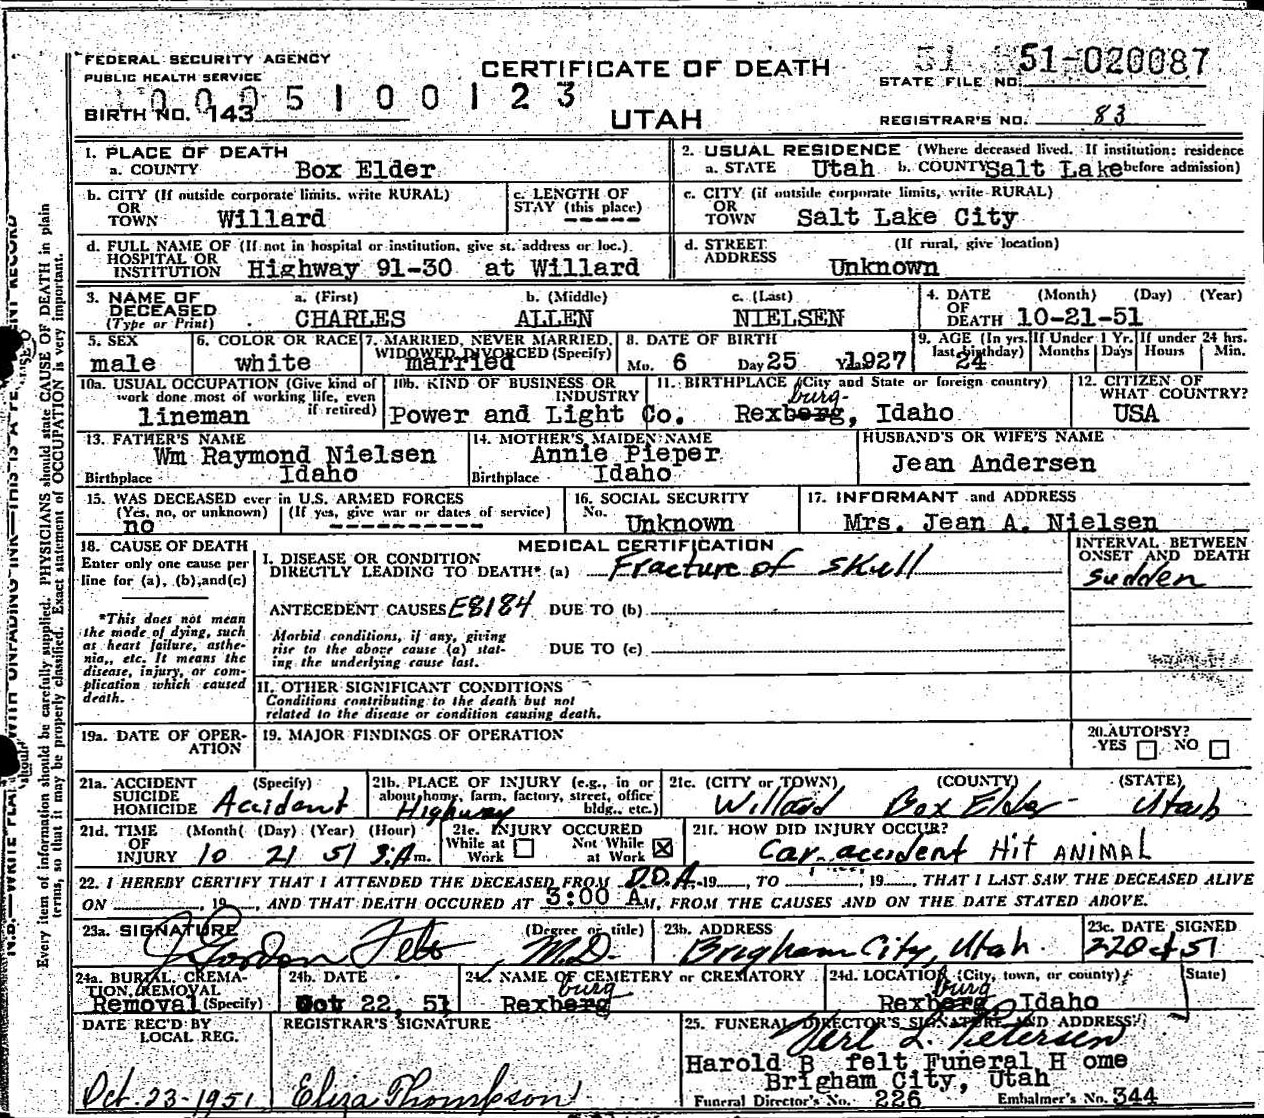 FEDERAL SECURITY AGENCY
PUBLIC HEALTH SERVICE
CERTIFICATE OF DEATH
51 51-020087
STATE FILE NO.
0005100123
BIRTH NO. 143
UTAH
REGISTRAR'S NO. 83
1. PLACE OF DEATH
a. COUNTY Box Elder
2. USUAL RESIDENCE (Where deceased lived. If institution: residence
a. STATE Utah b. COUNTY Salt Lake before admission)
b. CITY (If outside corporate limits, write RURAL)
OR
TOWN Willard
c. LENGTH OF
STAY (this place)
-----
c. CITY (if outside corporate limits, write RURAL)
OR
TOWN Salt Lake City
d. FULL NAME OF (If not in hospital or institution, give st. address or loc.)
HOSPITAL OR
INSTITUTION Highway 91-30 at Willard
d. STREET (If rural, give location)
ADDRESS
Unknown
3. NAME OF DECEASED
(Type or Print)
a. (First) b. (Middle) c. (Last)
CHARLES ALLEN NIELSEN
4. DATE (Month) (Day) (Year)
OF
DEATH 10-21-51
5. SEX
male
6. COLOR OR RACE
white
7. MARRIED, NEVER MARRIED,
WIDOWED DIVORCED (Specify)
married
8. DATE OF BIRTH
Mo. 6 Day 25 Yr. 1927
9. AGE (In yrs. last birthday)
24
If Under 1 Yr.
Months Days
If under 24 hrs.
Hours Min.
10a. USUAL OCCUPATION (Give kind of
work done most of working life, even
if retired)
lineman
10b. KIND OF BUSINESS OR
INDUSTRY
Power and Light Co.
11. BIRTHPLACE (City and State or foreign country)
burg-
Rexberg, Idaho
12. CITIZEN OF
WHAT COUNTRY?
USA
13. FATHER'S NAME
Wm Raymond Nielsen
Birthplace Idaho
14. MOTHER'S MAIDEN NAME
Annie Pieper
Birthplace Idaho
HUSBAND'S OR WIFE'S NAME
Jean Andersen
15. WAS DECEASED ever in U.S. ARMED FORCES
(Yes, no, or unknown) (If yes, give war or dates of service)
no -----------
16. SOCIAL SECURITY
No. Unknown
17. INFORMANT and ADDRESS
Mrs. Jean A. Nielsen
18. CAUSE OF DEATH
Enter only one cause per
line for (a), (b), and (c)
*This does not mean
the mode of dying, such
as heart failure, asthe-
nia, etc. It means the
disease, injury, or com-
plication which caused
death.
MEDICAL CERTIFICATION
I. DISEASE OR CONDITION
DIRECTLY LEADING TO DEATH* (a) Fracture of Skull
ANTECEDENT CAUSES E8184 DUE TO (b)
Morbid conditions, if any, giving
rise to the above cause (a) stat-
ing the underlying cause last.
DUE TO (c)
II. OTHER SIGNIFICANT CONDITIONS
Conditions contributing to the death but not
related to the disease or condition causing death.
INTERVAL BETWEEN
ONSET AND DEATH
sudden
19a. DATE OF OPER-
ATION
19. MAJOR FINDINGS OF OPERATION
20. AUTOPSY?
YES NO
21a. ACCIDENT (Specify)
SUICIDE
HOMICIDE Accident
21b. PLACE OF INJURY (e.g., in or
about home, farm, factory, street, office
bldg., etc.)
Highway
21c. (CITY or TOWN) (COUNTY) (STATE)
Willard Box Elder Utah
21d. TIME (Month) (Day) (Year) (Hour)
OF
INJURY 10 21 51 3:Am.
21e. INJURY OCCURED
While at Work Not While at Work X
21f. HOW DID INJURY OCCUR?
Car accident Hit ANIMAL
22. I HEREBY CERTIFY THAT I ATTENDED THE DECEASED FROM D.O.A. 19, TO , 19, THAT I LAST SAW THE DECEASED ALIVE
ON , 19, AND THAT DEATH OCCURED AT 3:00 A M, FROM THE CAUSES AND ON THE DATE STATED ABOVE.
23a. SIGNATURE (Degree or title)
J Gordon Felt M.D.
23b. ADDRESS
Brigham City, Utah.
23c. DATE SIGNED
22 Oct 51
24a. BURIAL, CREMA-
TION, REMOVAL
Removal (Specify)
24b. DATE
Oct 22, 51
24c. NAME OF CEMETERY or CREMATORY
burg
Rexberg
24d. LOCATION (City, town, or county) (State)
burg
Rexberg Idaho
DATE REC'D BY
LOCAL REG.
Oct. 23-1951
REGISTRAR'S SIGNATURE
Eliza Thompson
25. FUNERAL DIRECTOR'S SIGNATURE AND ADDRESS
Verl L. Petersen
Harold B felt Funeral H ome
Brigham City, Utah
Funeral Director's No. 226 Embalmer's No. 344
Every item of information should be carefully supplied. PHYSICIANS should state CAUSE OF DEATH in plain
terms, so that it may be properly classified. Exact statement of OCCUPATION is very important.